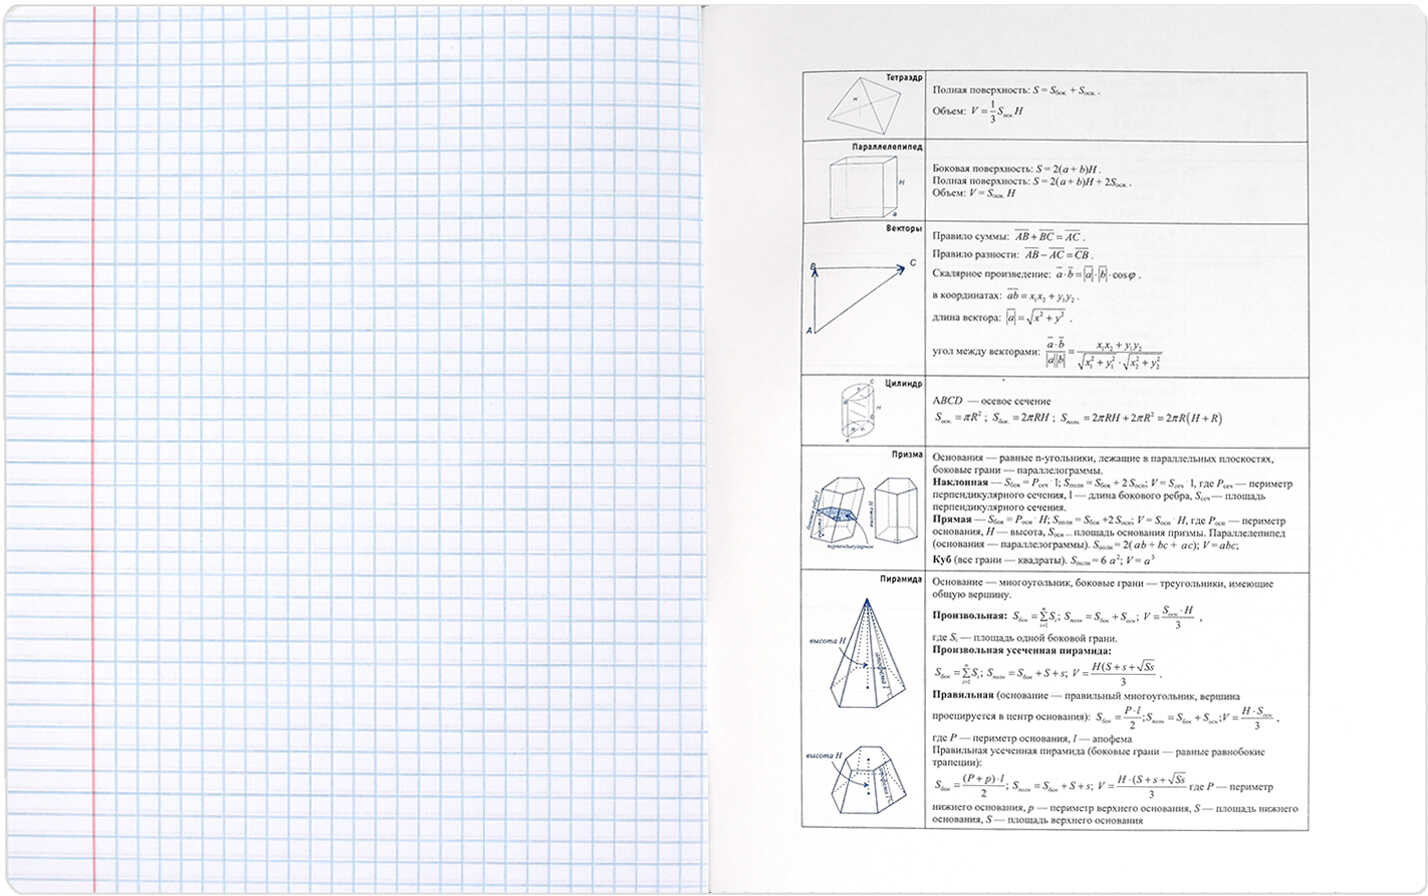 Тетраэдр
H
Полная поверхность: S = Sбок. + Sосн. .
Объем: V = 1/3 Sосн. H
Параллелепипед
H
a
Боковая поверхность: S = 2(a + b)H .
Полная поверхность: S = 2(a + b)H + 2Sосн. .
Объем: V = Sосн. H
Векторы
B
C
A
Правило суммы: AB + BC = AC .
Правило разности: AB − AC = CB .
Скалярное произведение: a · b = |a| · |b| · cosφ .
в координатах: ab = x₁x₂ + y₁y₂ .
длина вектора: |a| = √(x² + y²) .
угол между векторами: a · b / |a||b| = (x₁x₂ + y₁y₂) / (√(x₁² + y₁²) · √(x₂² + y₂²))
Цилиндр
H
ABCD — осевое сечение
Sосн. = πR² ; Sбок. = 2πRH ; Sполн. = 2πRH + 2πR² = 2πR(H + R)
Призма
высота H
перпендикулярное
Основания — равные n-угольники, лежащие в параллельных плоскостях,
боковые грани — параллелограммы.
Наклонная — Sбок = Pсеч · l; Sполн = Sбок + 2 Sосн; V = Sсеч · l, где Pсеч — периметр
перпендикулярного сечения, l — длина бокового ребра, Sсеч — площадь
перпендикулярного сечения.
Прямая — Sбок = Pосн · H; Sполн = Sбок +2 Sосн; V = Sосн · H, где Pосн — периметр
основания, H — высота, Sосн — площадь основания призмы. Параллелепипед
(основания — параллелограммы). Sполн = 2( ab + bc + ac); V = abc;
Куб (все грани — квадраты). Sполн = 6 a²; V = a³
Пирамида
высота H
апофема l
Основание — многоугольник, боковые грани — треугольники, имеющие
общую вершину.
Произвольная: Sбок = Σ Sᵢ; Sполн = Sбок + Sосн; V = Sосн · H / 3 ,
где Sᵢ — площадь одной боковой грани.
Произвольная усеченная пирамида:
Sбок = Σ Sᵢ; Sполн = Sбок + S + s; V = H(S + s + √Ss / 3 .
Правильная (основание — правильный многоугольник, вершина
проецируется в центр основания): Sбок = P · l / 2 ; Sполн = Sбок + Sосн ; V = H · Sосн / 3 ,
где P — периметр основания, l — апофема
Правильная усеченная пирамида (боковые грани — равные равнобокие
трапеции):
высота H
Sбок = (P + p) · l / 2 ; Sполн = Sбок + S + s; V = H · (S + s + √Ss / 3 где P — периметр
нижнего основания, p — периметр верхнего основания, S — площадь нижнего
основания, S — площадь верхнего основания